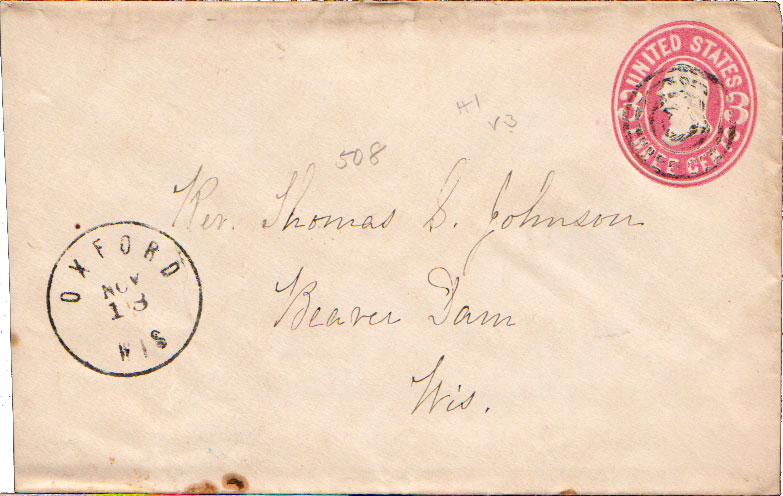 UNITED STATES
3 3
THREE CENTS
41
V3
508
Rev. Thomas S. Johnson
Beaver Dam
Wis.
OXFORD
NOV
13
WIS